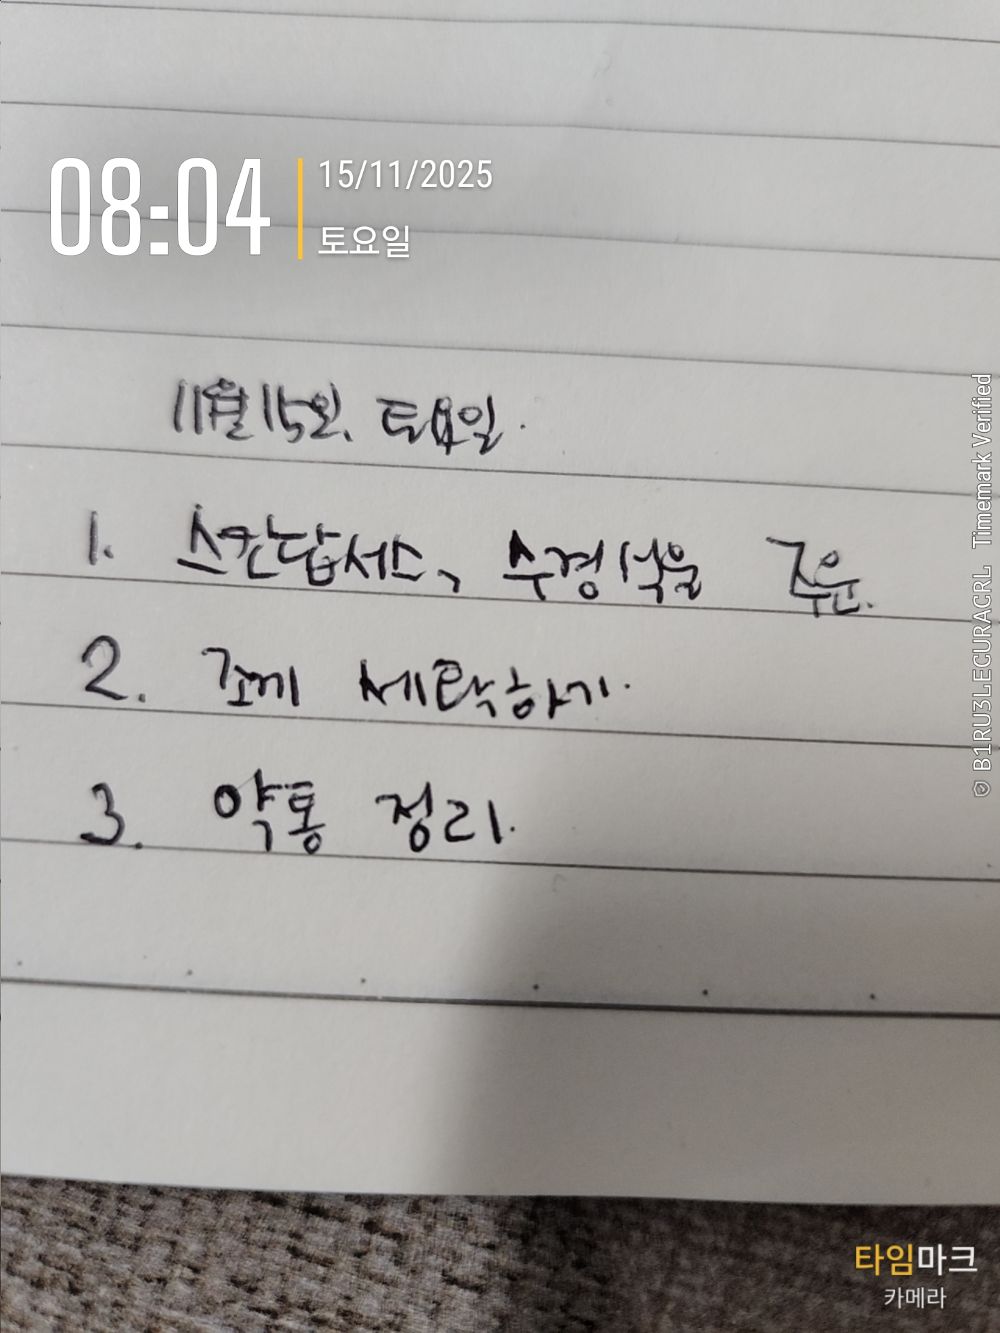 08:04
15/11/2025
토요일
11월 15일. 토요일.
1. 스킨답서스, 수경식물 주문.
2. 조끼 세탁하기.
3. 약통 정리.
© B1RU3LECURACRL Timemark Verified
타임마크
카메라